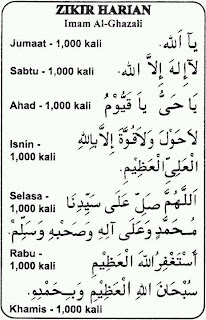 ZIKIR HARIAN
Imam Al-Ghazali
Jumaat - 1,000 kali يَا اَللهُ.
Sabtu - 1,000 kali لَا إِلٰهَ إِلَّا اللهُ.
Ahad - 1,000 kali يَا حَيُّ يَا قَيُّومُ
Isnin - لَاحَوْلَ وَلَاقُوَّةَ إِلَّا بِاللهِ
1,000 kali الْعَلِيِّ الْعَظِيْمِ.
Selasa - اَللّٰهُمَّ صَلِّ عَلَى سَيِّدِنَا
1,000 kali
مُحَمَّدٍ وَعَلَى آلِهِ وَصَحْبِهِ وَسَلِّمْ.
Rabu - أَسْتَغْفِرُ اللهَ الْعَظِيْمَ
1,000 kali
سُبْحَانَ اللهِ الْعَظِيْمِ وَبِحَمْدِهِ.
Khamis - 1,000 kali